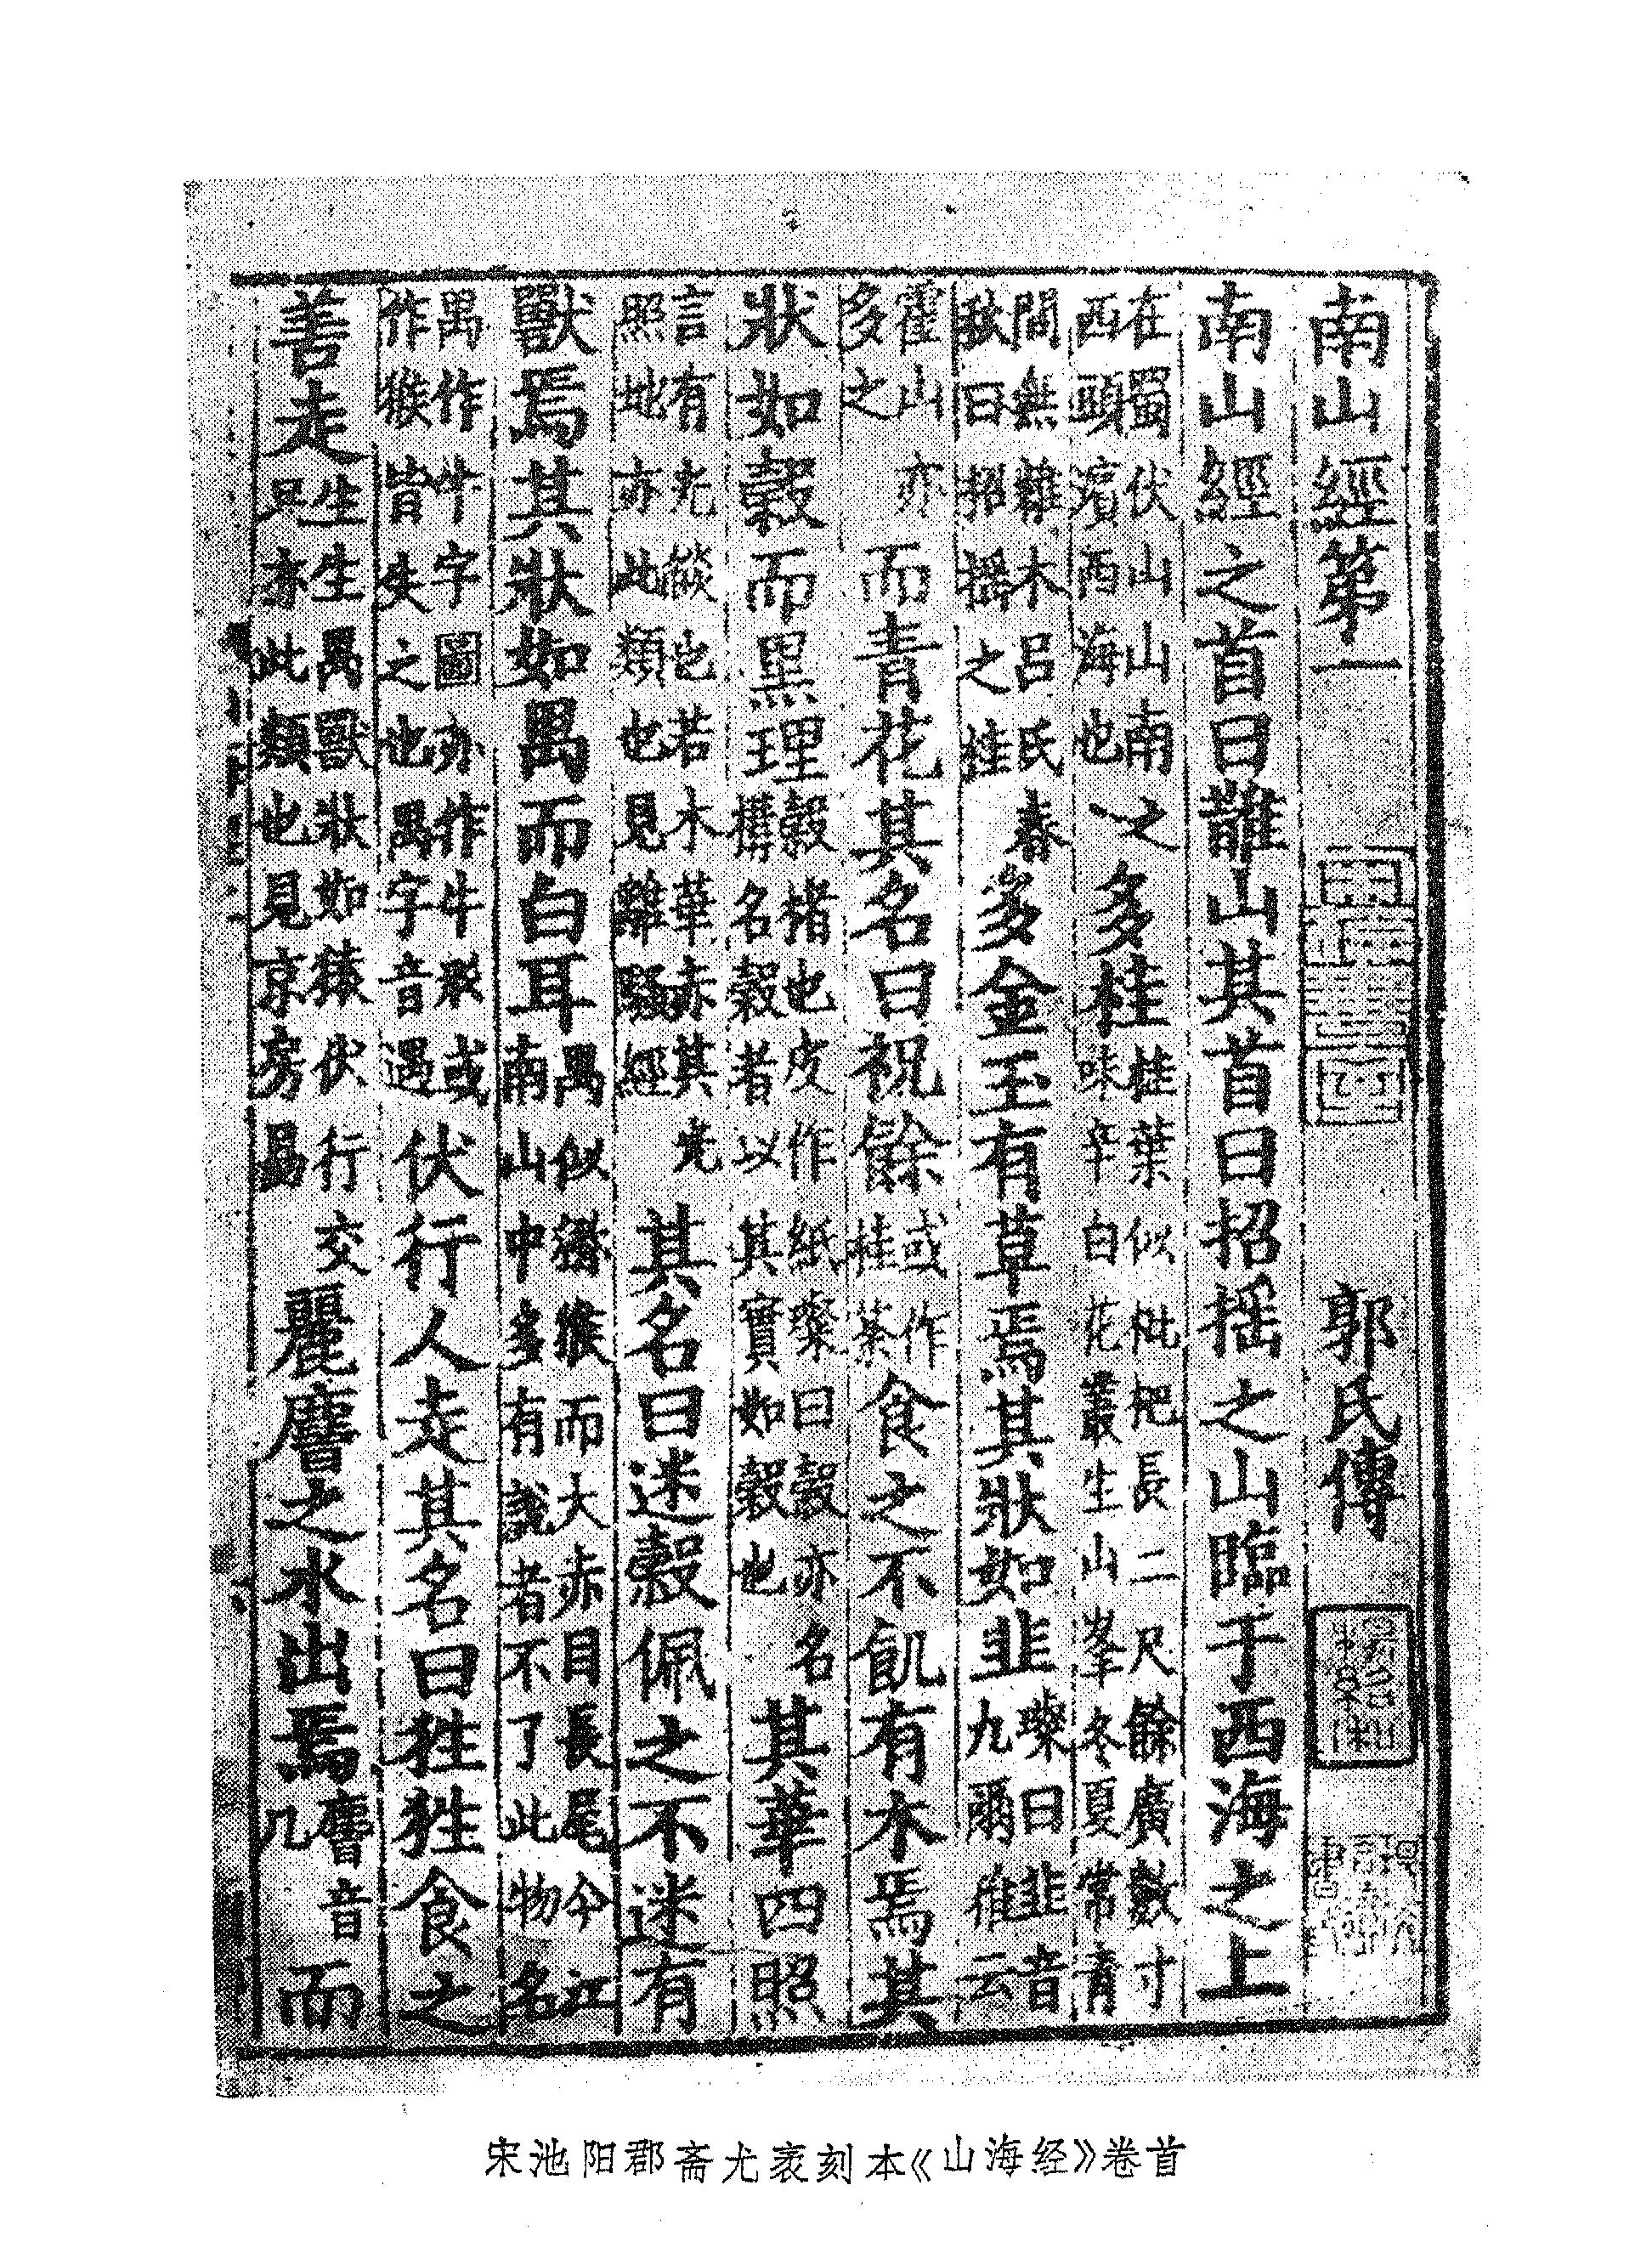 南山經第一 郭氏傳
南山經之首曰䧿山其首曰招摇之山臨于西海之上
在蜀伏山山南之西頭濱西海也多桂桂葉似枇杷長二尺餘廣數寸味辛白花叢生山峯冬夏常青
間無雜木呂氏春秋曰招摇之桂多金玉有草焉其狀如韭璨曰韭音九爾雅云
霍山亦多之而青花其名曰祝餘或作桂荼食之不飢有木焉其
狀如榖而黑理榖楮也皮作紙璨曰榖亦名構名榖者以其實如榖也其華四照
言有光燄也若木華赤其光照地亦此類也見離騷經其名曰迷榖佩之不迷有
獸焉其狀如禺而白耳禺似獼猴而大赤目長尾今江南山中多有説者不了此物名
禺作牛字圖亦作牛形或作猴皆失之也禺字音遇伏行人走其名曰狌狌食之
善走生生禺獸狀如猿伏行交足亦此類也見京房易麗𪊨之水出焉𪊨音几而
宋池阳郡斋尤袤刻本《山海经》卷首